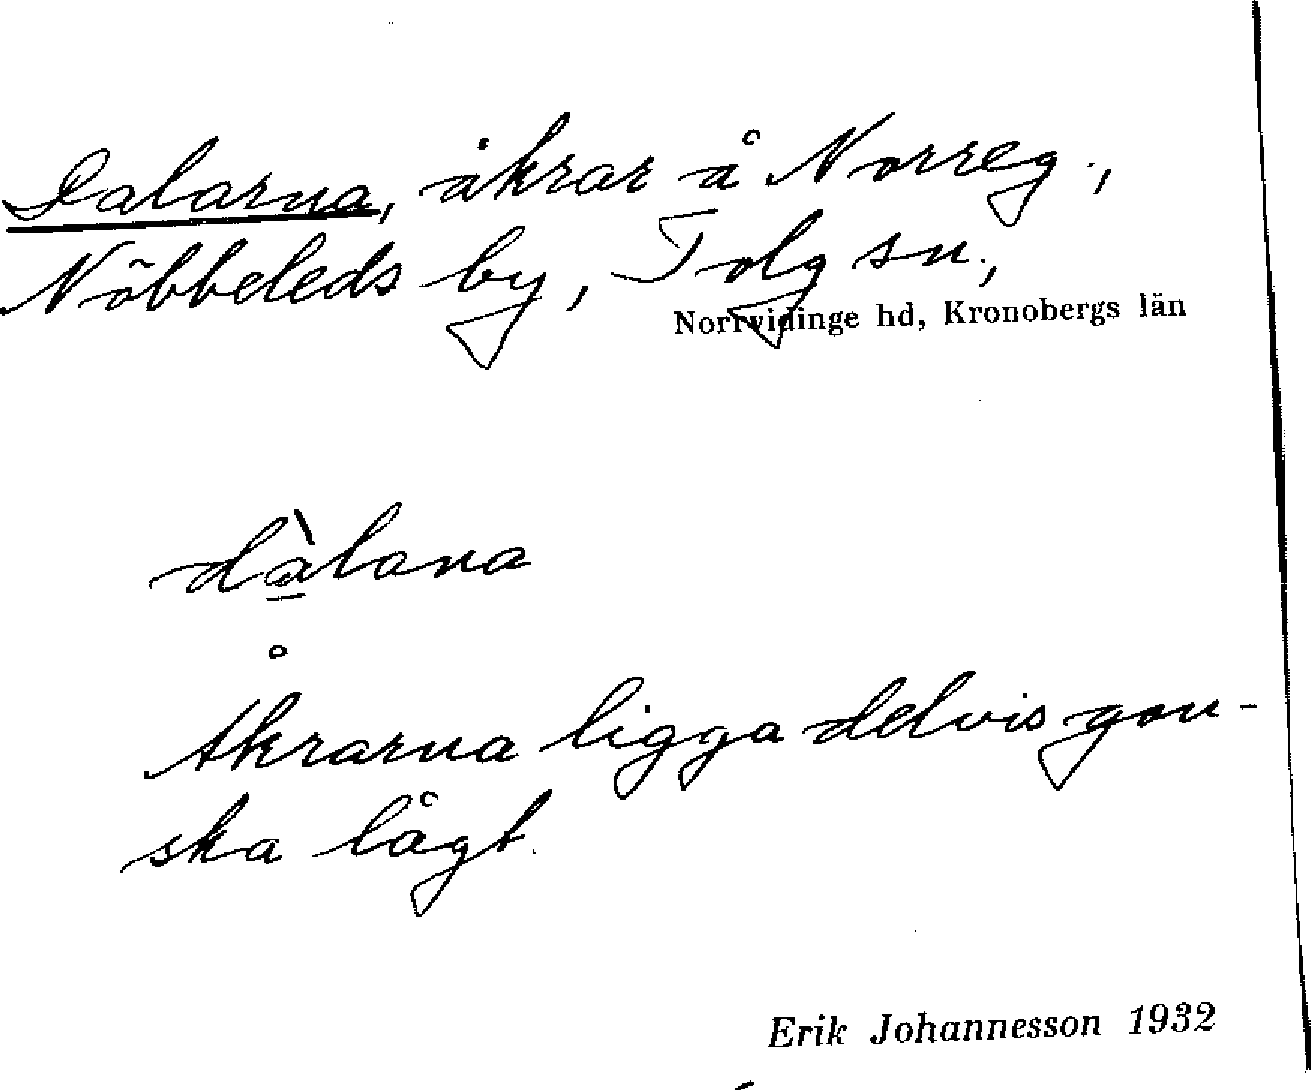 Dalarna, åkrar å Norreg.,
Nöbbeleds by, Tolg sn.,
Norrvidinge hd, Kronobergs län
dàlana
Åkrarna ligga delvis gan-
ska lågt.
Erik Johannesson 1932